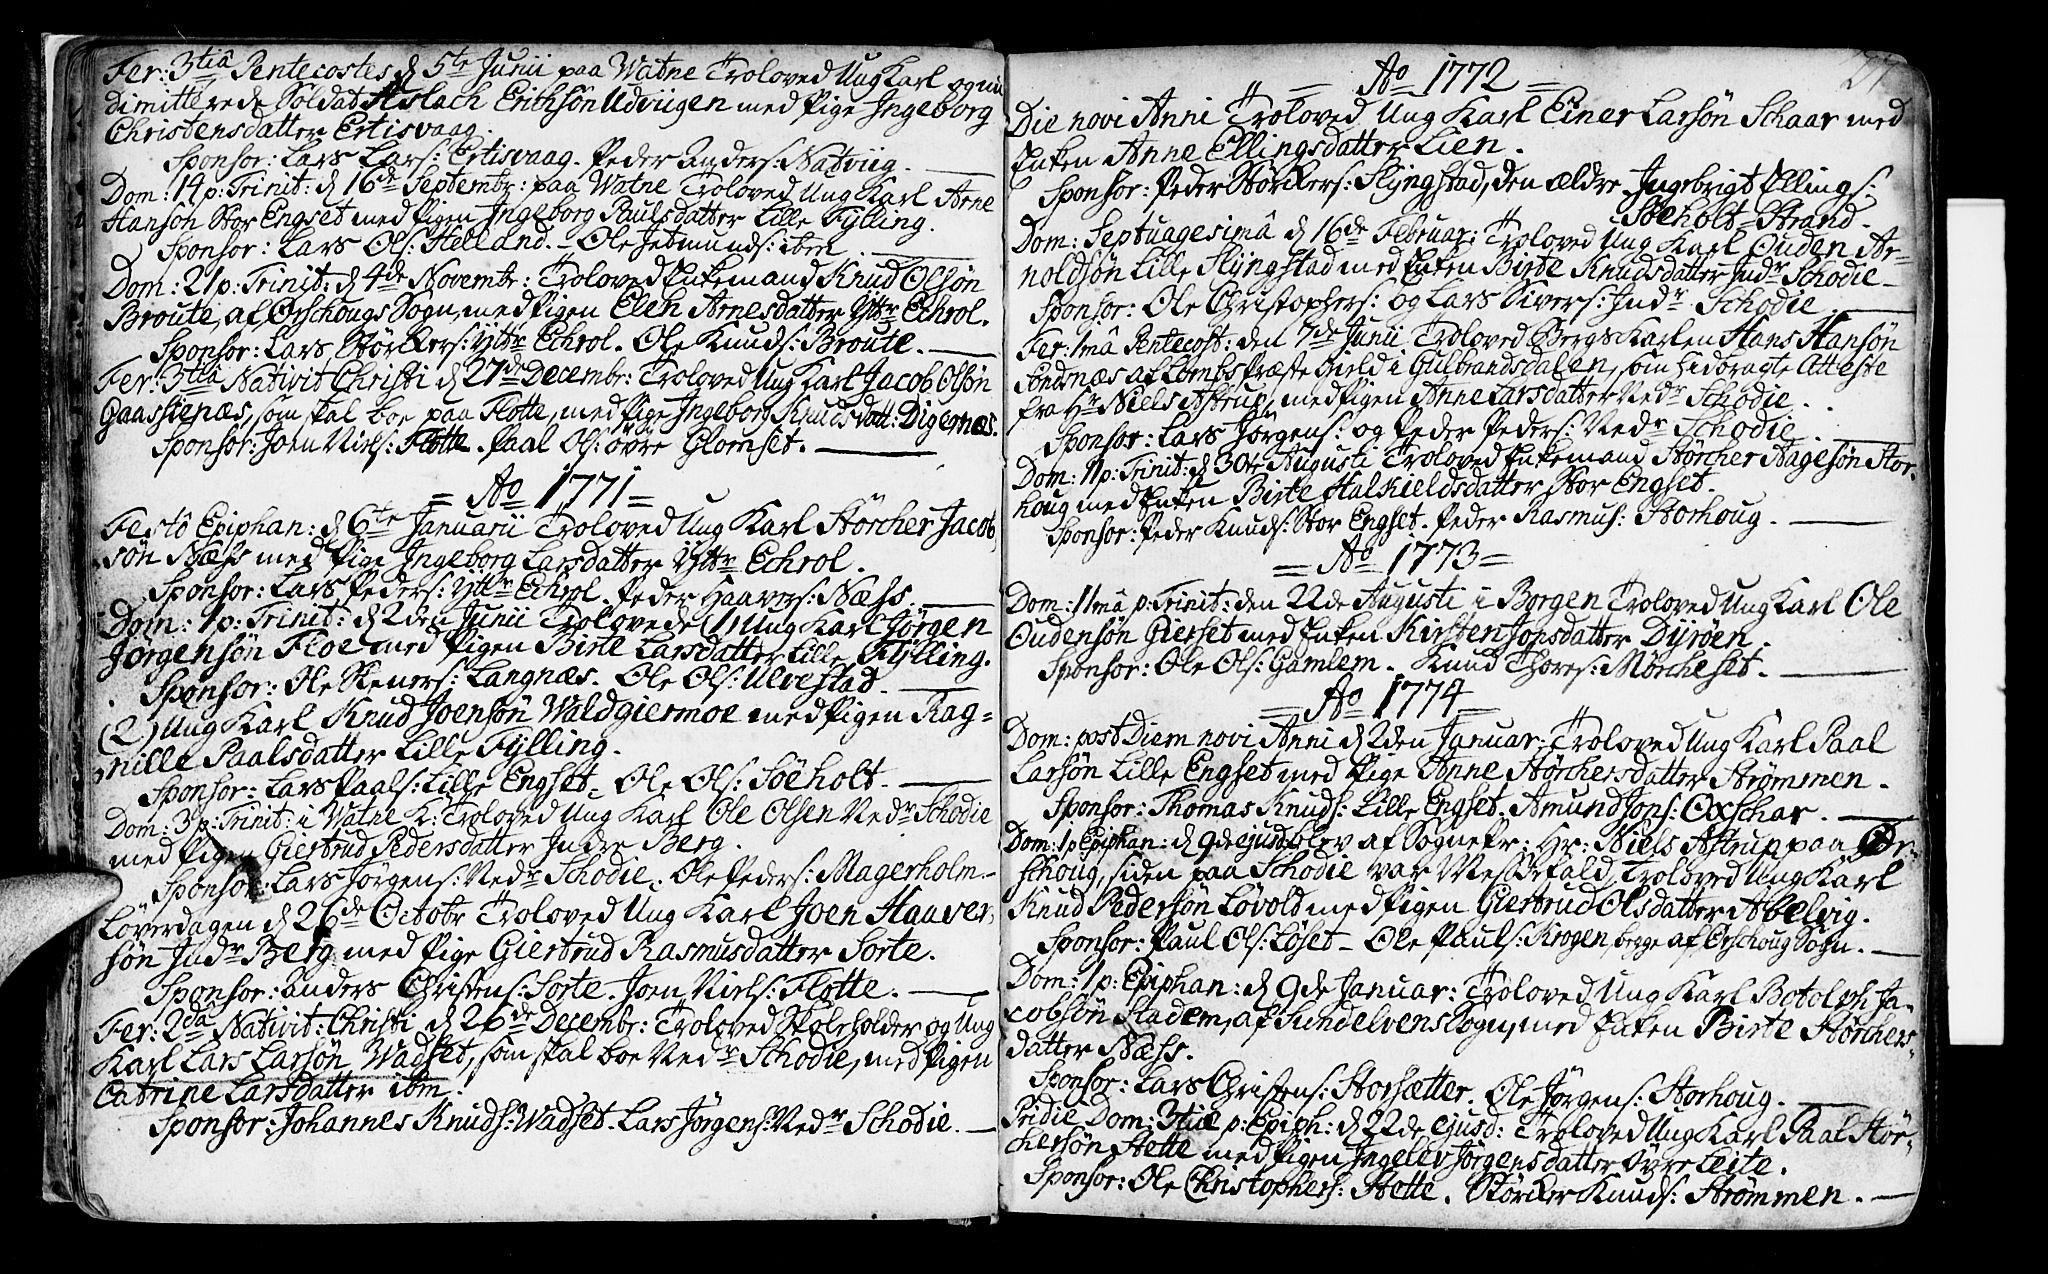 Fer: 3tiâ Pentecostes d 5te Junii paa Watne Troloved Ung Karl og nu
dimitterede Soldat Aslach Erichsøn Udviigen med Pige Ingeborg
Christensdatter Ertisvaag.
Sponsor: Lars Lars: Ertisvaag. Peder Anders: Natviig.
Dom: 14 p: Trinit: d 16de Septembr: paa Watne Troloved Ung Karl Arne
Hansøn Stor Engset med Pigen Ingeborg Paulsdatter Lille Fylling.
Sponsor: Lars Ols: Helland. - Ole Jetmunds: ibm
Dom: 21 p: Trinit: d 4de Novembr: Troloved Enkemand Knud Olsøn
Broute, af Ørschougs Sogn, med Pigen Elen Arnesdatter Yttr Echrol.
Sponsor: Lars Störckers: Yttr Echrol. Ole Knuds: Broute.
Fer: 3tiâ Nativit Christi d 27de Decembr: Troloved Ung Karl Jacob Olsøn
Gaassienæs, som skal boe paa Flotte, med Pige Ingeborg Knudsdatt: Digernæs.
Sponsor: Joen Niels: Flotte. Paal Ols: øvre Glomset.
= Ao 1771 =
Festô Epiphan: d 6te Januarii Troloved Ung Karl Störcher Jacob
søn Næss med Pige Ingeborg Larsdatter Yttr Echrol.
Sponsor: Lars Peders: Yttr Echrol. Peder Haavers: Næss.
Dom: 1 p: Trinit: d 2den Junii Trolovede (1) Ung Karl Jörgen
Jörgensøn Floe med Pigen Birte Larsdatter Lille Fylling.
Sponsor: Ole Steners: Langnæs. Ole Ols: Ulvestad.
(2) Ung Karl Knud Joensøn Waldgiermoe med Pigen Rag=
nille Paalsdatter Lille Fylling.
Sponsor: Lars Paals: Lille Engset. Ole Ols: Söeholt.
Dom: 3 p: Trinit: i Watne K: Troloved Ung Karl Ole Olsen Nedr Schodie
med Pigen Giertrud Pedersdatter Indre Berg.
Sponsor: Lars Jörgens: Nedr Schodie. Ole Peders: Magerholm
Löverdagen d 26de Octobr Troloved Ung Karl Joen Haaver
søn Indr Berg med Pige Giertrud Rasmusdatter Sorte.
Sponsor: Anders Christens: Sorte. Joen Niels: Flotte.
Fer: 2dâ Nativit: Christi d 26de Decembr: Troloved Skoleholder og Ung
Karl Lars Larsøn Wadset, som skal boe Nedr Schodie, med Pigen
Catrine Larsdatter ibm.
Sponsor: Johannes Knuds: Wadset. Lars Jörgens: Nedr Schodie.
= Ao 1772 =
Die novi Anni Troloved Ung Karl Einer Larsøn Schaar med
Enken Anne Ellingsdatter Lien.
Sponsor: Peder Störckers: Slyngstad, den ældre Ingebrigt Ellings:
Söeholt=Strand.
Dom: Septuagesimâ d 16de Februar: Troloved Ung Karl Ouden Ar=
noldsøn Lille Slyngstad med Enken Birte Knudsdatter Indr Schodie
Sponsor: Ole Christophers: og Lars Sivers: Indr Schodie
Fer: 1mâ Pentecost: den 7de Junii Troloved BergsKarlen Hans Hansøn
Sandnæs af Lombs Præstegield i Gulbrandsdalen, som hidbragte Atteste
fra Hr Niels Astrup, med Pigen Anne Larsdatter Nedr Schodie.
Sponsor: Lars Jörgens: og Peder Peders: Nedr Schodie
Dom: 11 p: Trinit: d 30te Augusti Troloved Enkemand Störcher Aagesøn Stor
houg med Enken Birte Halkieldsdatter Stor Engset.
Sponsor: Peder Knuds: Stor Engset. Peder Rasmus: Storhoug.
= Ao 1773 =
Dom: 11mâ p: Trinit: den 22de Augusti i Borgen Troloved Ung Karl Ole
Oudensøn Gierset med Enken Kirsten Jonsdatter Dyrøen.
Sponsor: Ole Ols: Gamlem. Knud Thores: Mörcheset.
= Ao 1774 =
Dom: post Diem novi Anni d 2den Januar: Troloved Ung Karl Paal
Larsøn Lille Engset med Pige Anne Störchersdatter Strømmen.
Sponsor: Thomas Knuds: Lille Engset. Amund Jons: Oxschar.
Dom: 1 p Epiphan: d 9de ejusd blev af Sognepr: Hr: Niels Astrup paa Ør-
schoug, siden paa Schodie var Messefald, Troloved Ung Karl
Knud Pedersøn Løvold med Pigen Giertrud Olsdatter Abelvig.
Sponsor: Paul Ols: Løset - Ole Pauls: Krogen, begge af Ørschoug Sogn.
Dom: 1 p: Epiphan: d 9de Januar: Troloved Ung Karl Botolph Ja-
cobsøn Stadem, af Sundelvens Sogn, med Enken Birte Störchers-
datter Næss.
Sponsor: Lars Christens: Storsætter. Ole Jörgens: Storhoug.
Pridie Dom: 3tiæ p: Epiph: d 22de ejusd: Troloved Ung Karl Paal Stör-
chersøn Stette med Pigen Ingelev Jörgensdatter Øvre Leite.
Sponsor: Ole Christophers: Stette. Störcker Knuds: Strømmen.